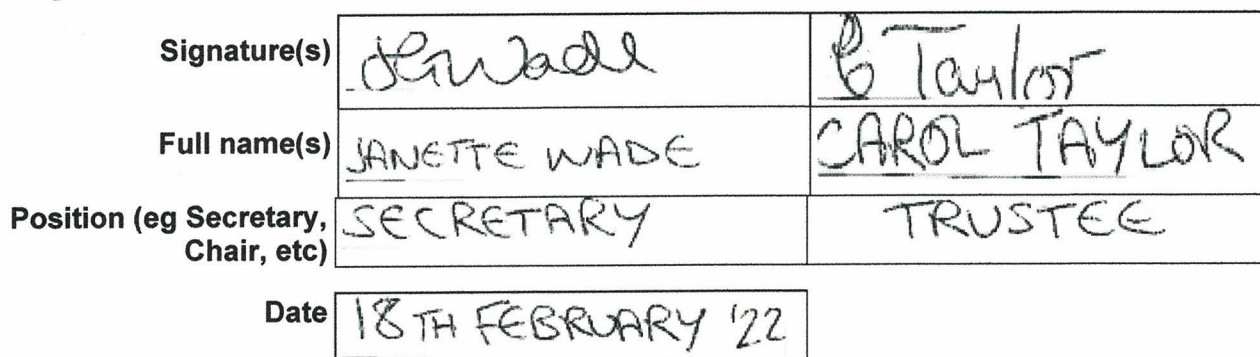 Signature(s) JGWade C Taylor
Full name(s) JANETTE WADE CAROL TAYLOR
Position (eg Secretary, SECRETARY TRUSTEE
Chair, etc)
Date 18TH FEBRUARY '22